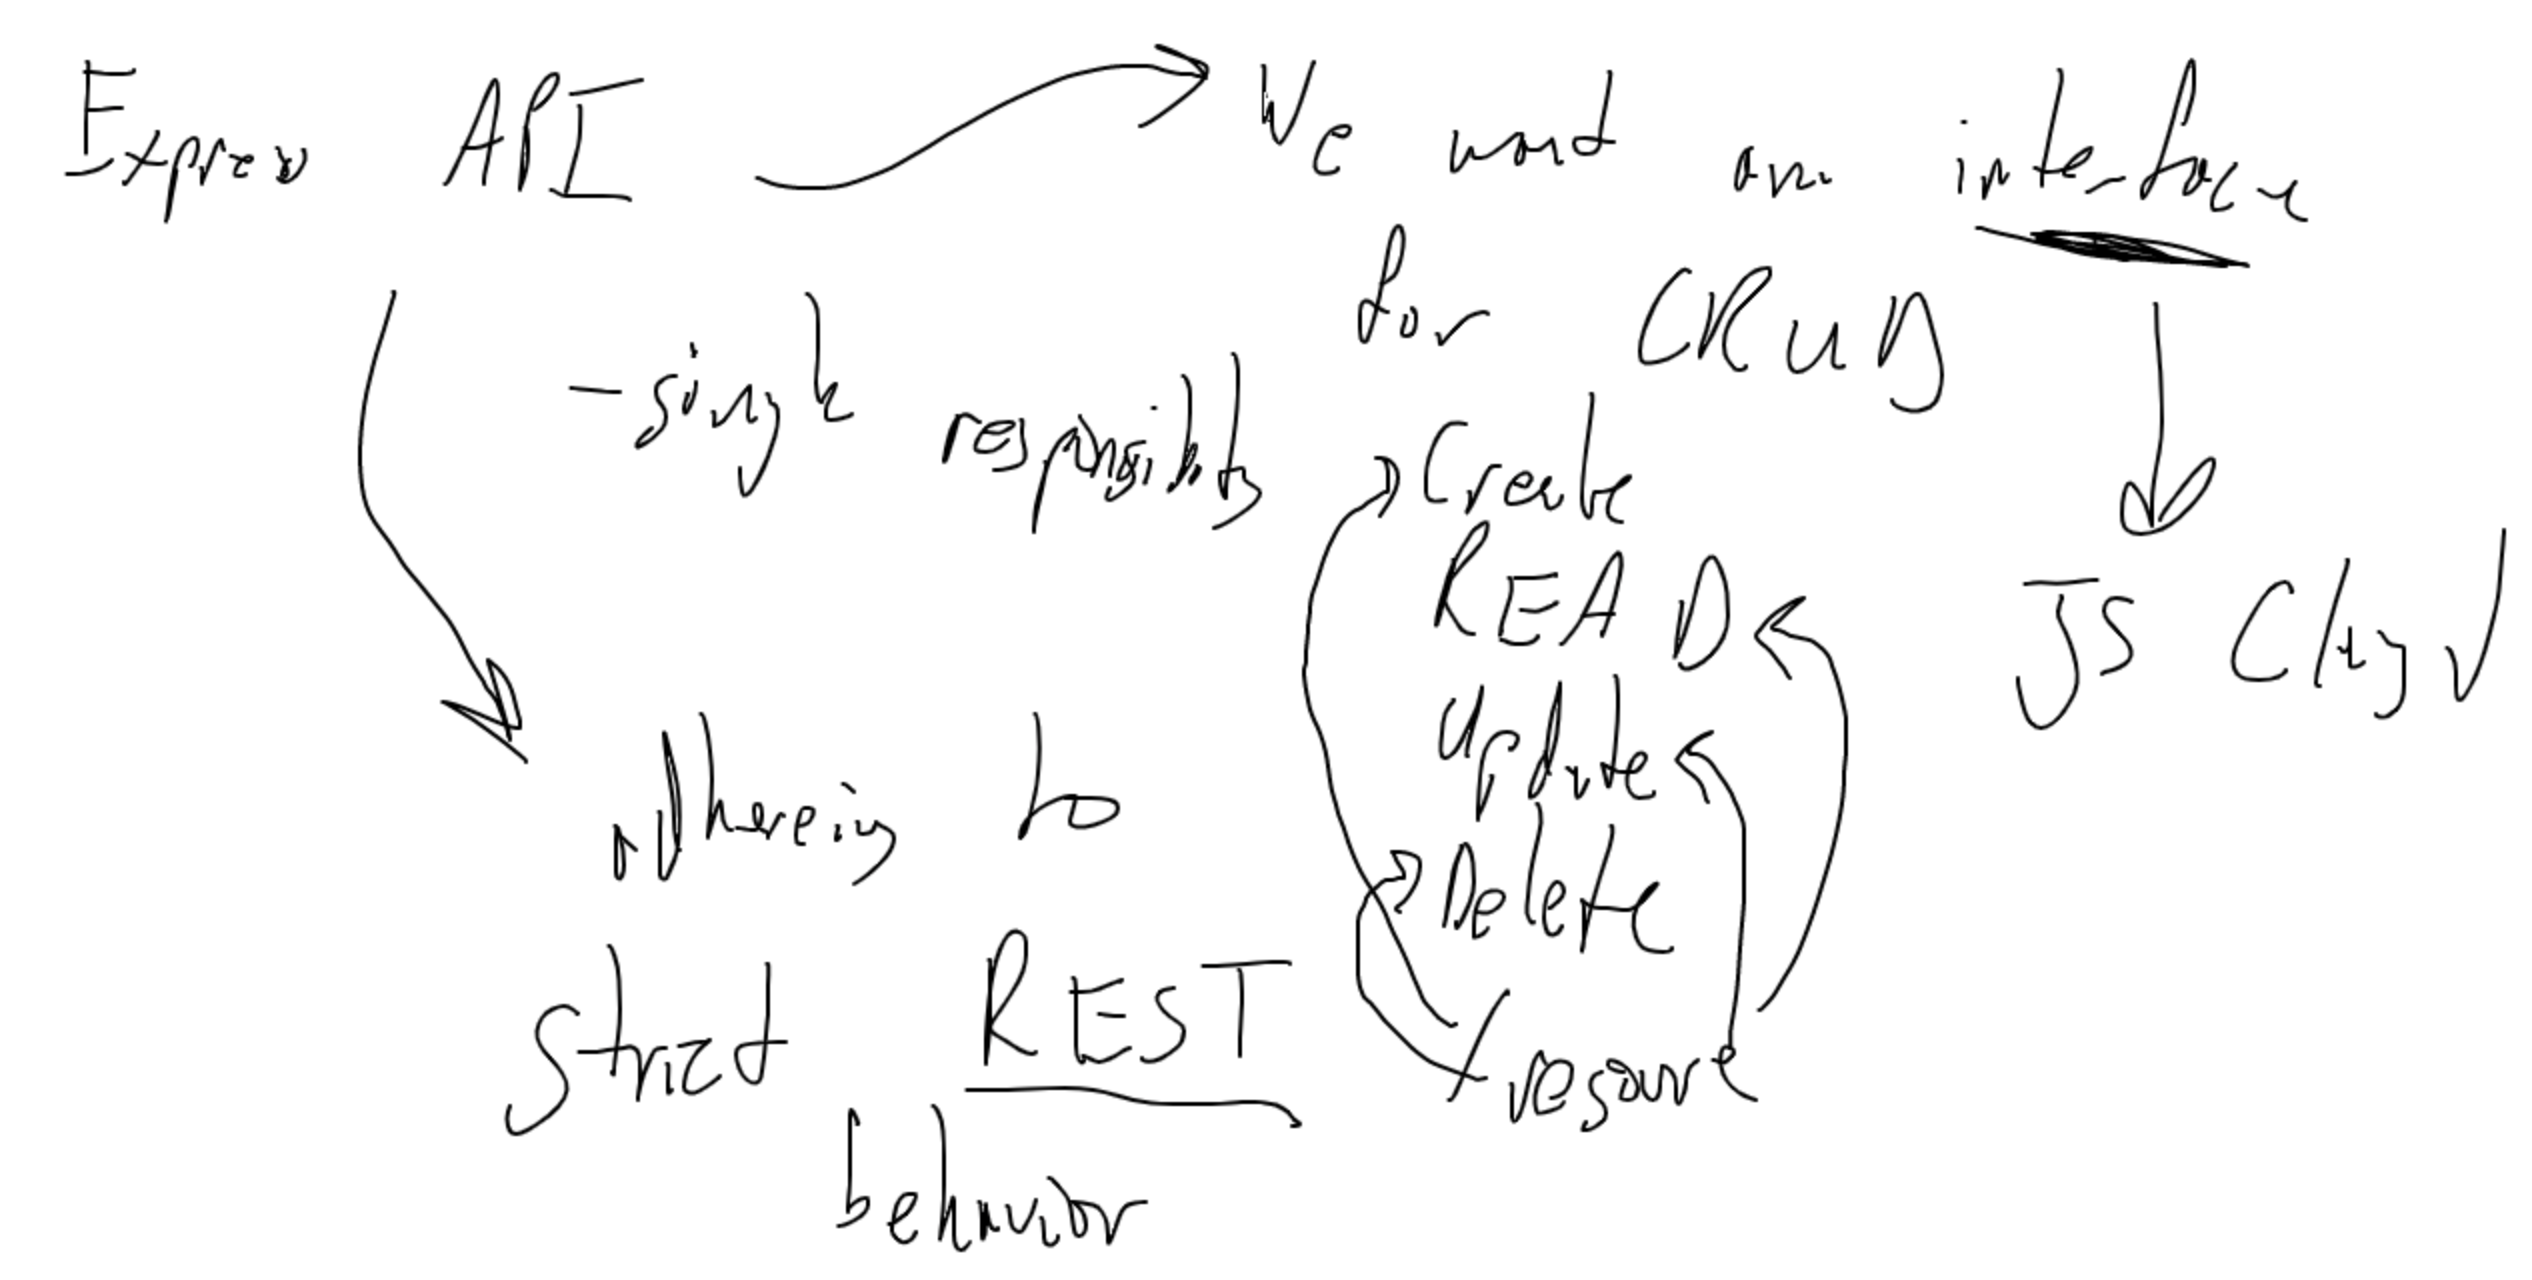 Express API
We want an interface
for CRUD
- single responsibility
Create
READ
Update
Delete
/resource
JS
adhereing to
strict REST
behavior